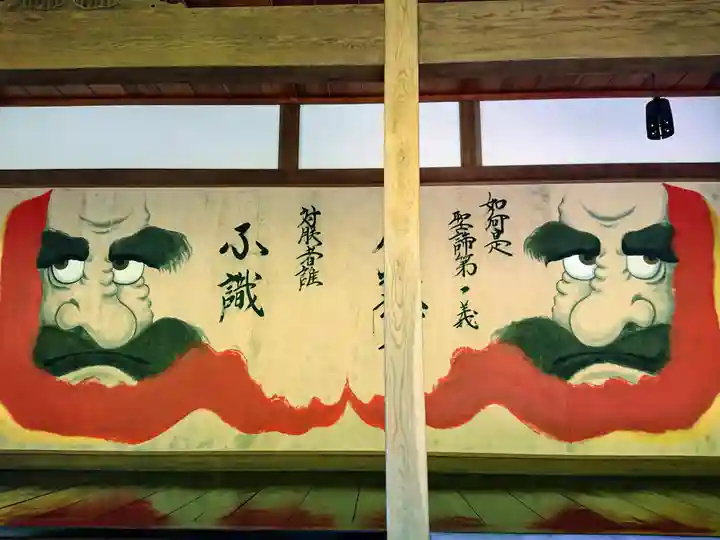 如何是
聖諦第一義
対朕者誰
不識